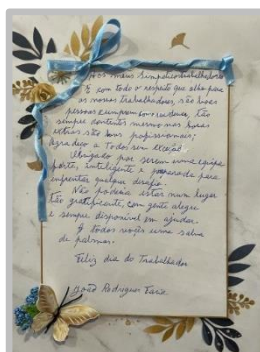 Aos meus simpáticos trabalhadores
É com todo o respeito que olho para
os nossos trabalhadores, são boas
pessoas cumprem com cuidado, tão
sempre contentes mesmo nas horas
extras são bons profissionais;
Agradeço a todos sem exceção.
Obrigado por serem uma equipa
forte, inteligente e preparada para
enfrentar qualquer desafio.
Não podia estar num lugar
tão gratificante, com gente alegre
e sempre disponível em ajudar.
A todos vocês uma salva
de palmas.
Feliz dia do Trabalhador
João Rodrigues Faria